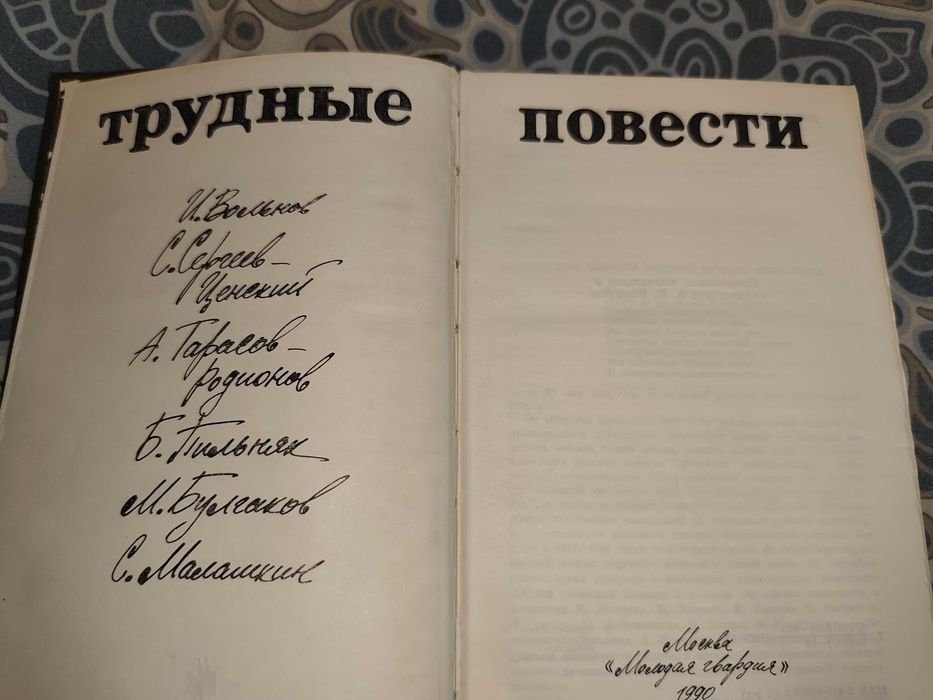 трудные
И. Вольнов
С. Сергеев-
Ценский
А. Тарасов-
Родионов
Б. Пильняк
М. Булгаков
С. Малашкин
повести
Москва
«Молодая гвардия»
1990